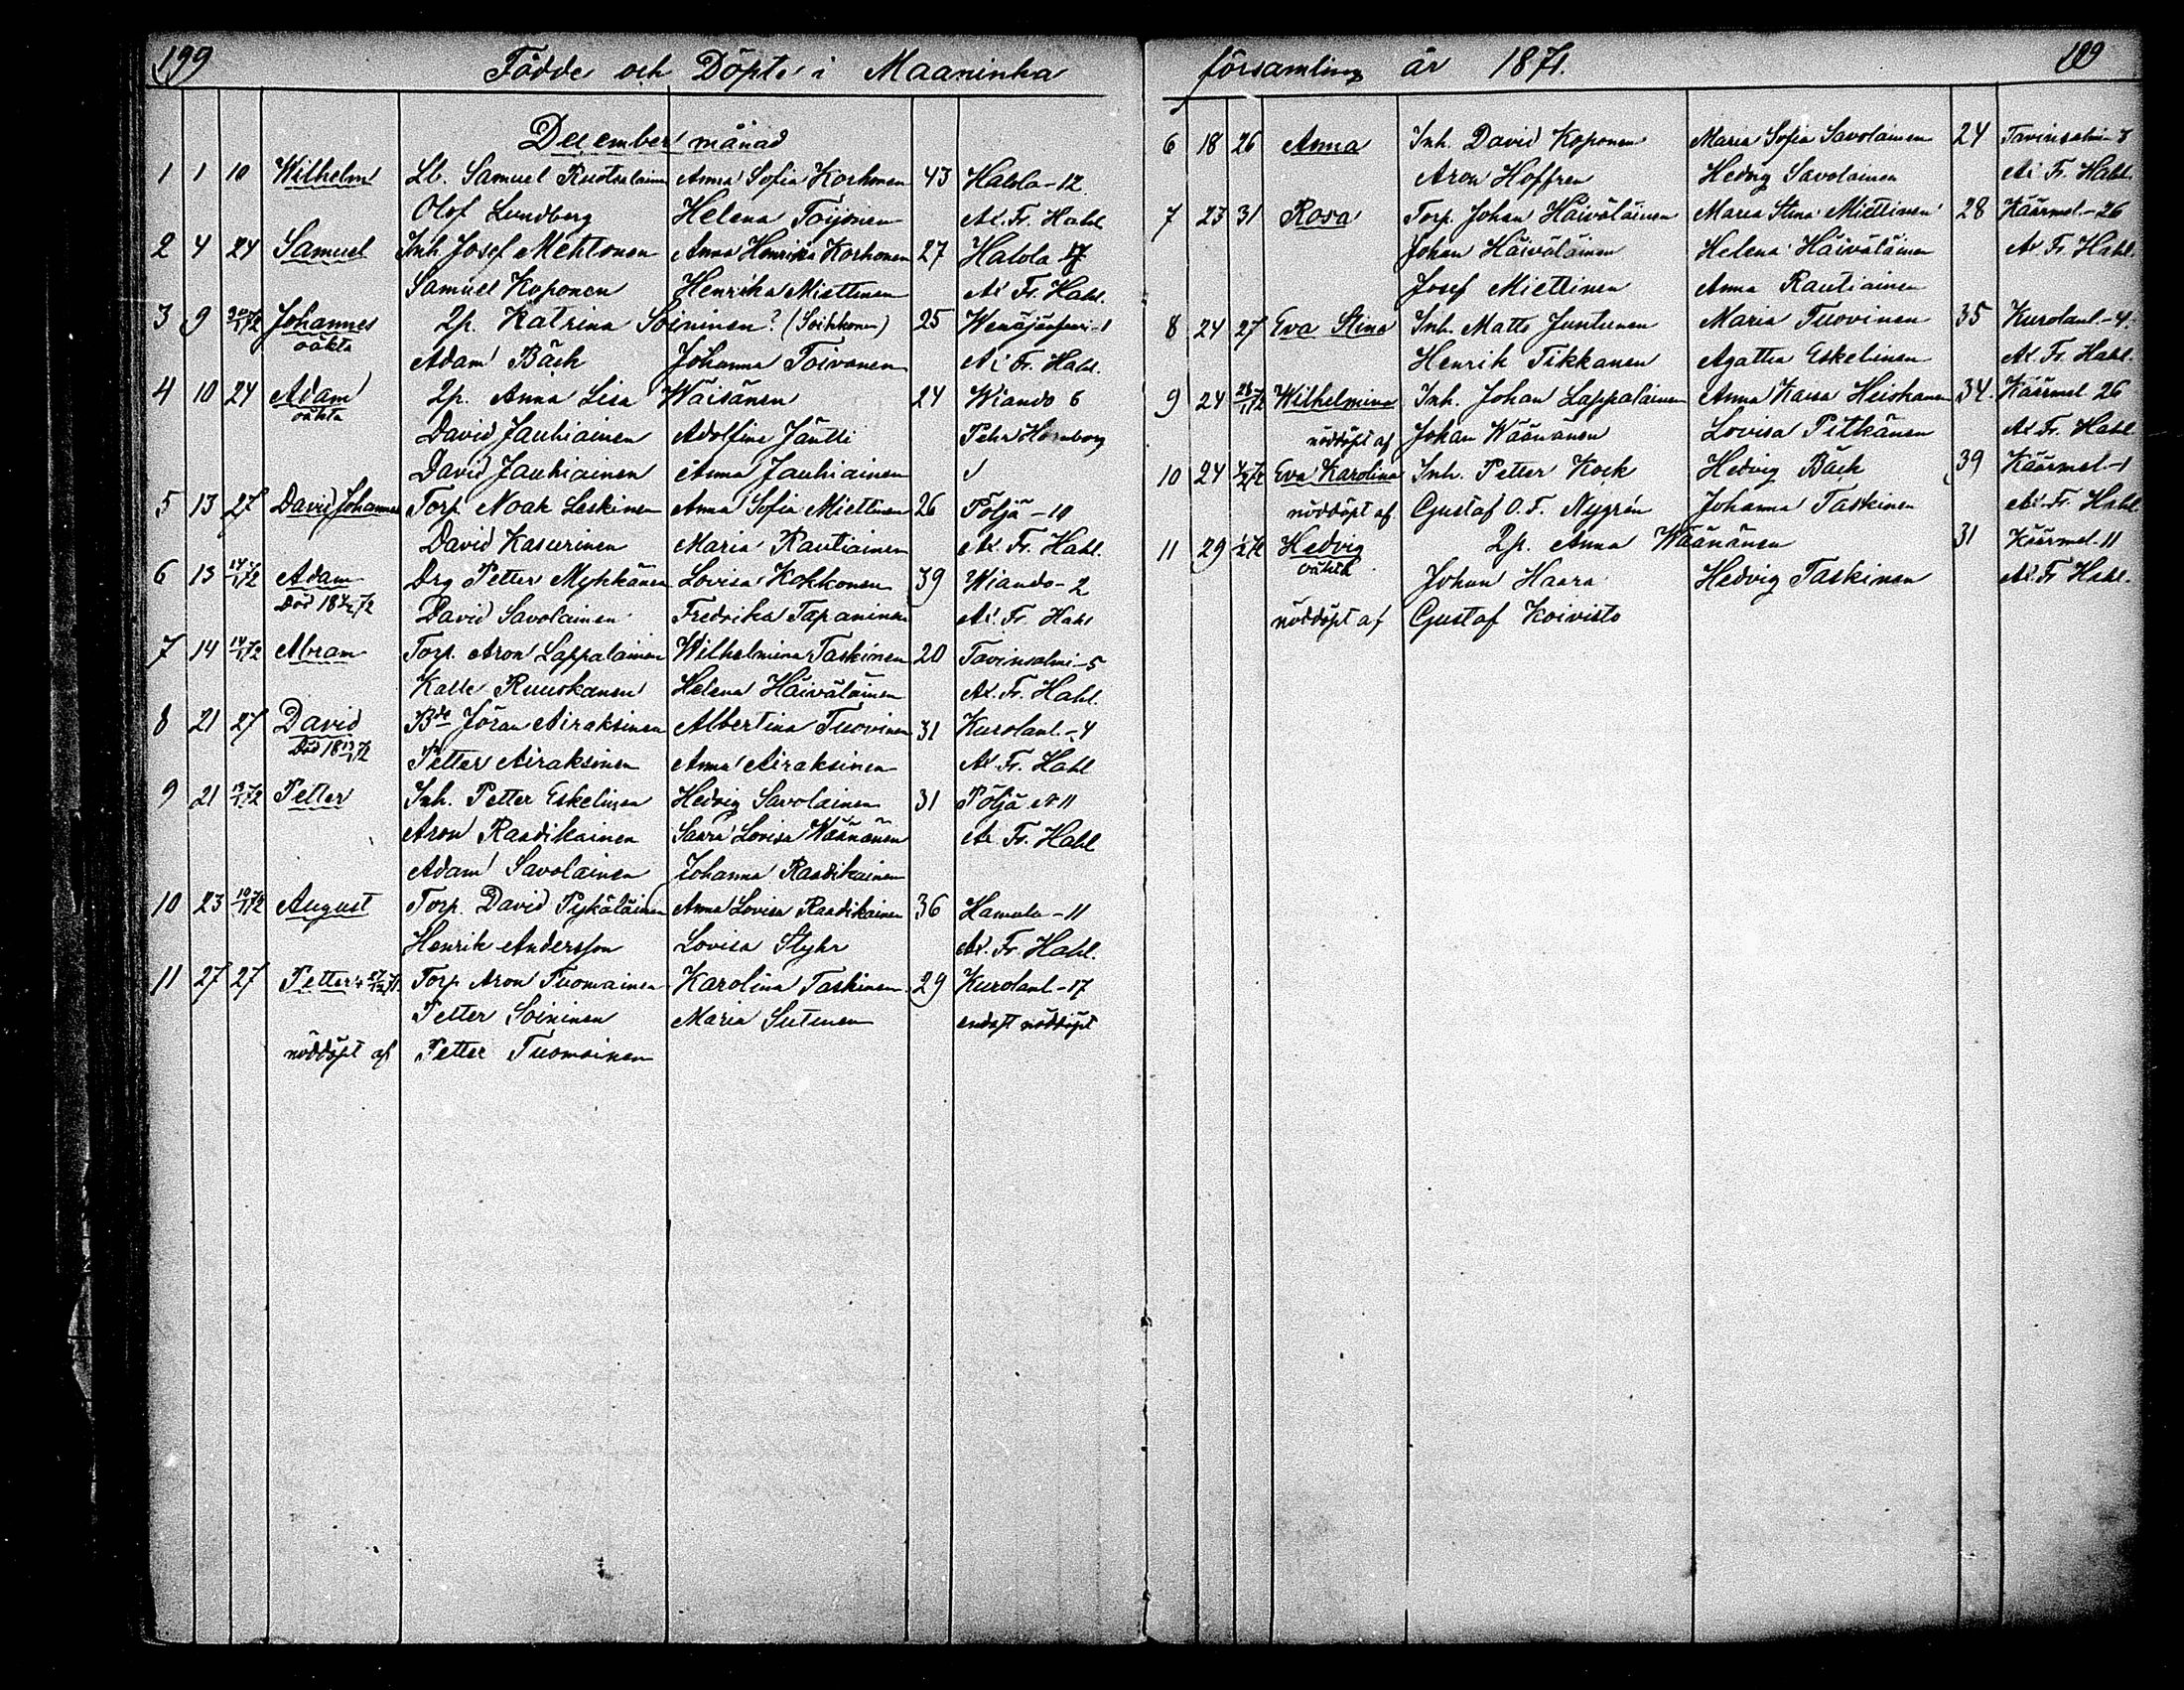 199 Födde och Döpte i Maaninka
December månad
1 1 10 Wilhelm Lb. Samuel Ruotsalainen Anna Sofia Korhonen 43 Halola-12
Olof Lundberg Helena Töyonen Ad. Fr. Hahl
2 4 24 Samuel Inh. Josef Mehtonen Anna Henrika Korhonen 27 Halola 17
Samuel Koponen Henrika Miettinen Ad. Fr. Hahl.
3 9 20/1 72 Johannes Qp. Katrina Soininen? (Soikkonen) 25 Wenäjänsaari-1
oäkta Adam Bäck Johanna Toivonen Ad. Fr. Hahl.
4 10 24 Adam Qp. Anna Lisa Wäisänen 24 Wiando 6
oäkta David Jauhiainen Adolfine Jäntti Pehr Homborg
David Jauhiainen Anna Jauhiainen
5 13 27 David Johannes Torp. Noak Laskinen Anna Sofia Miettinen 26 Pöljä-10
David Kasurinen Maria Rautiainen Ad. Fr. Hahl.
6 13 14/1 72 Adam Drg Petter Mykkänen Lovisa Kokkonen 39 Wiando-2
Död 72 David Savolainen Fredrika Tapaninen Ad. Fr. Hahl
7 14 14/1 72 Abram Torp. Aron Lappalainen Wilhelmina Taskinen 20 Tavinsalmi-5
Kalle Ruuskanen Helena Häiväläinen Ad. Fr. Hahl.
8 21 27 David Bde Jöran Airaksinen Albertina Tuovinen 31 Kurolanl.-4
Död 72 Petter Airaksinen Anna Airaksinen Ad. Fr. Hahl
9 21 13/1 72 Petter Inh. Petter Eskelinen Hedvig Savolainen 31 Pöljä 11
Aron Raadikainen Saara Lovisa Wäänänen Ad. Fr. Hahl
Adam Savolainen Johanna Raadikainen
10 23 10/1 72 August Torp. David Pykäläinen Anna Lovisa Raadikainen 36 Hamula-11
Henrik Andersson Lovisa Styhr Ad. Fr. Hahl.
11 27 27 Petter + 27/12 71. Torp Aron Tuomainen Karolina Taskinen 29 Kurolanl-17
Petter Soininen Maria Sutinen endast nöddöpt
nöddöpt af Petter Tuomainen
församling år 1871. 199
6 18 26 Anna Inh. David Koponen Maria Sofia Savolainen 24 Tavinsalmi-8
Aron Hoffren Hedvig Savolainen Ad. Fr. Hahl.
7 23 31 Rosa Torp. Johan Häiväläinen Maria Stina Miettinen 28 Käärmel.-26
Johan Häiväläinen Helena Häiväläinen Ad. Fr. Hahl.
Josef Miettinen Anna Rautiainen
8 24 27 Eva Stina Inh. Matts Juntunen Maria Tuovinen 35 Kurolanl.-4.
Henrik Tikkanen Agatha Eskelinen Ad. Fr. Hahl.
9 24 28/1 72 Wilhelmina Inh. Johan Lappalainen Anna Kaisa Heiskanen 34. Käärmel 26
nöddöpt af Johan Wäänänen Lovisa Pitkänen Ad. Fr. Hahl.
10 24 72 Eva Karolina Inh. Petter Kock Hedvig Bäck 39 Käärmel-1
nöddöpt af Gustaf O. F. Nygrén Johanna Taskinen Ad. Fr. Hahl
11 29 72 Hedvig Qp. Anna Wäänänen 31 Käärmel-11
oäkta Johan Haara Hedvig Taskinen Ad. Fr. Hahl.
nöddöpt af Gustaf Koivisto